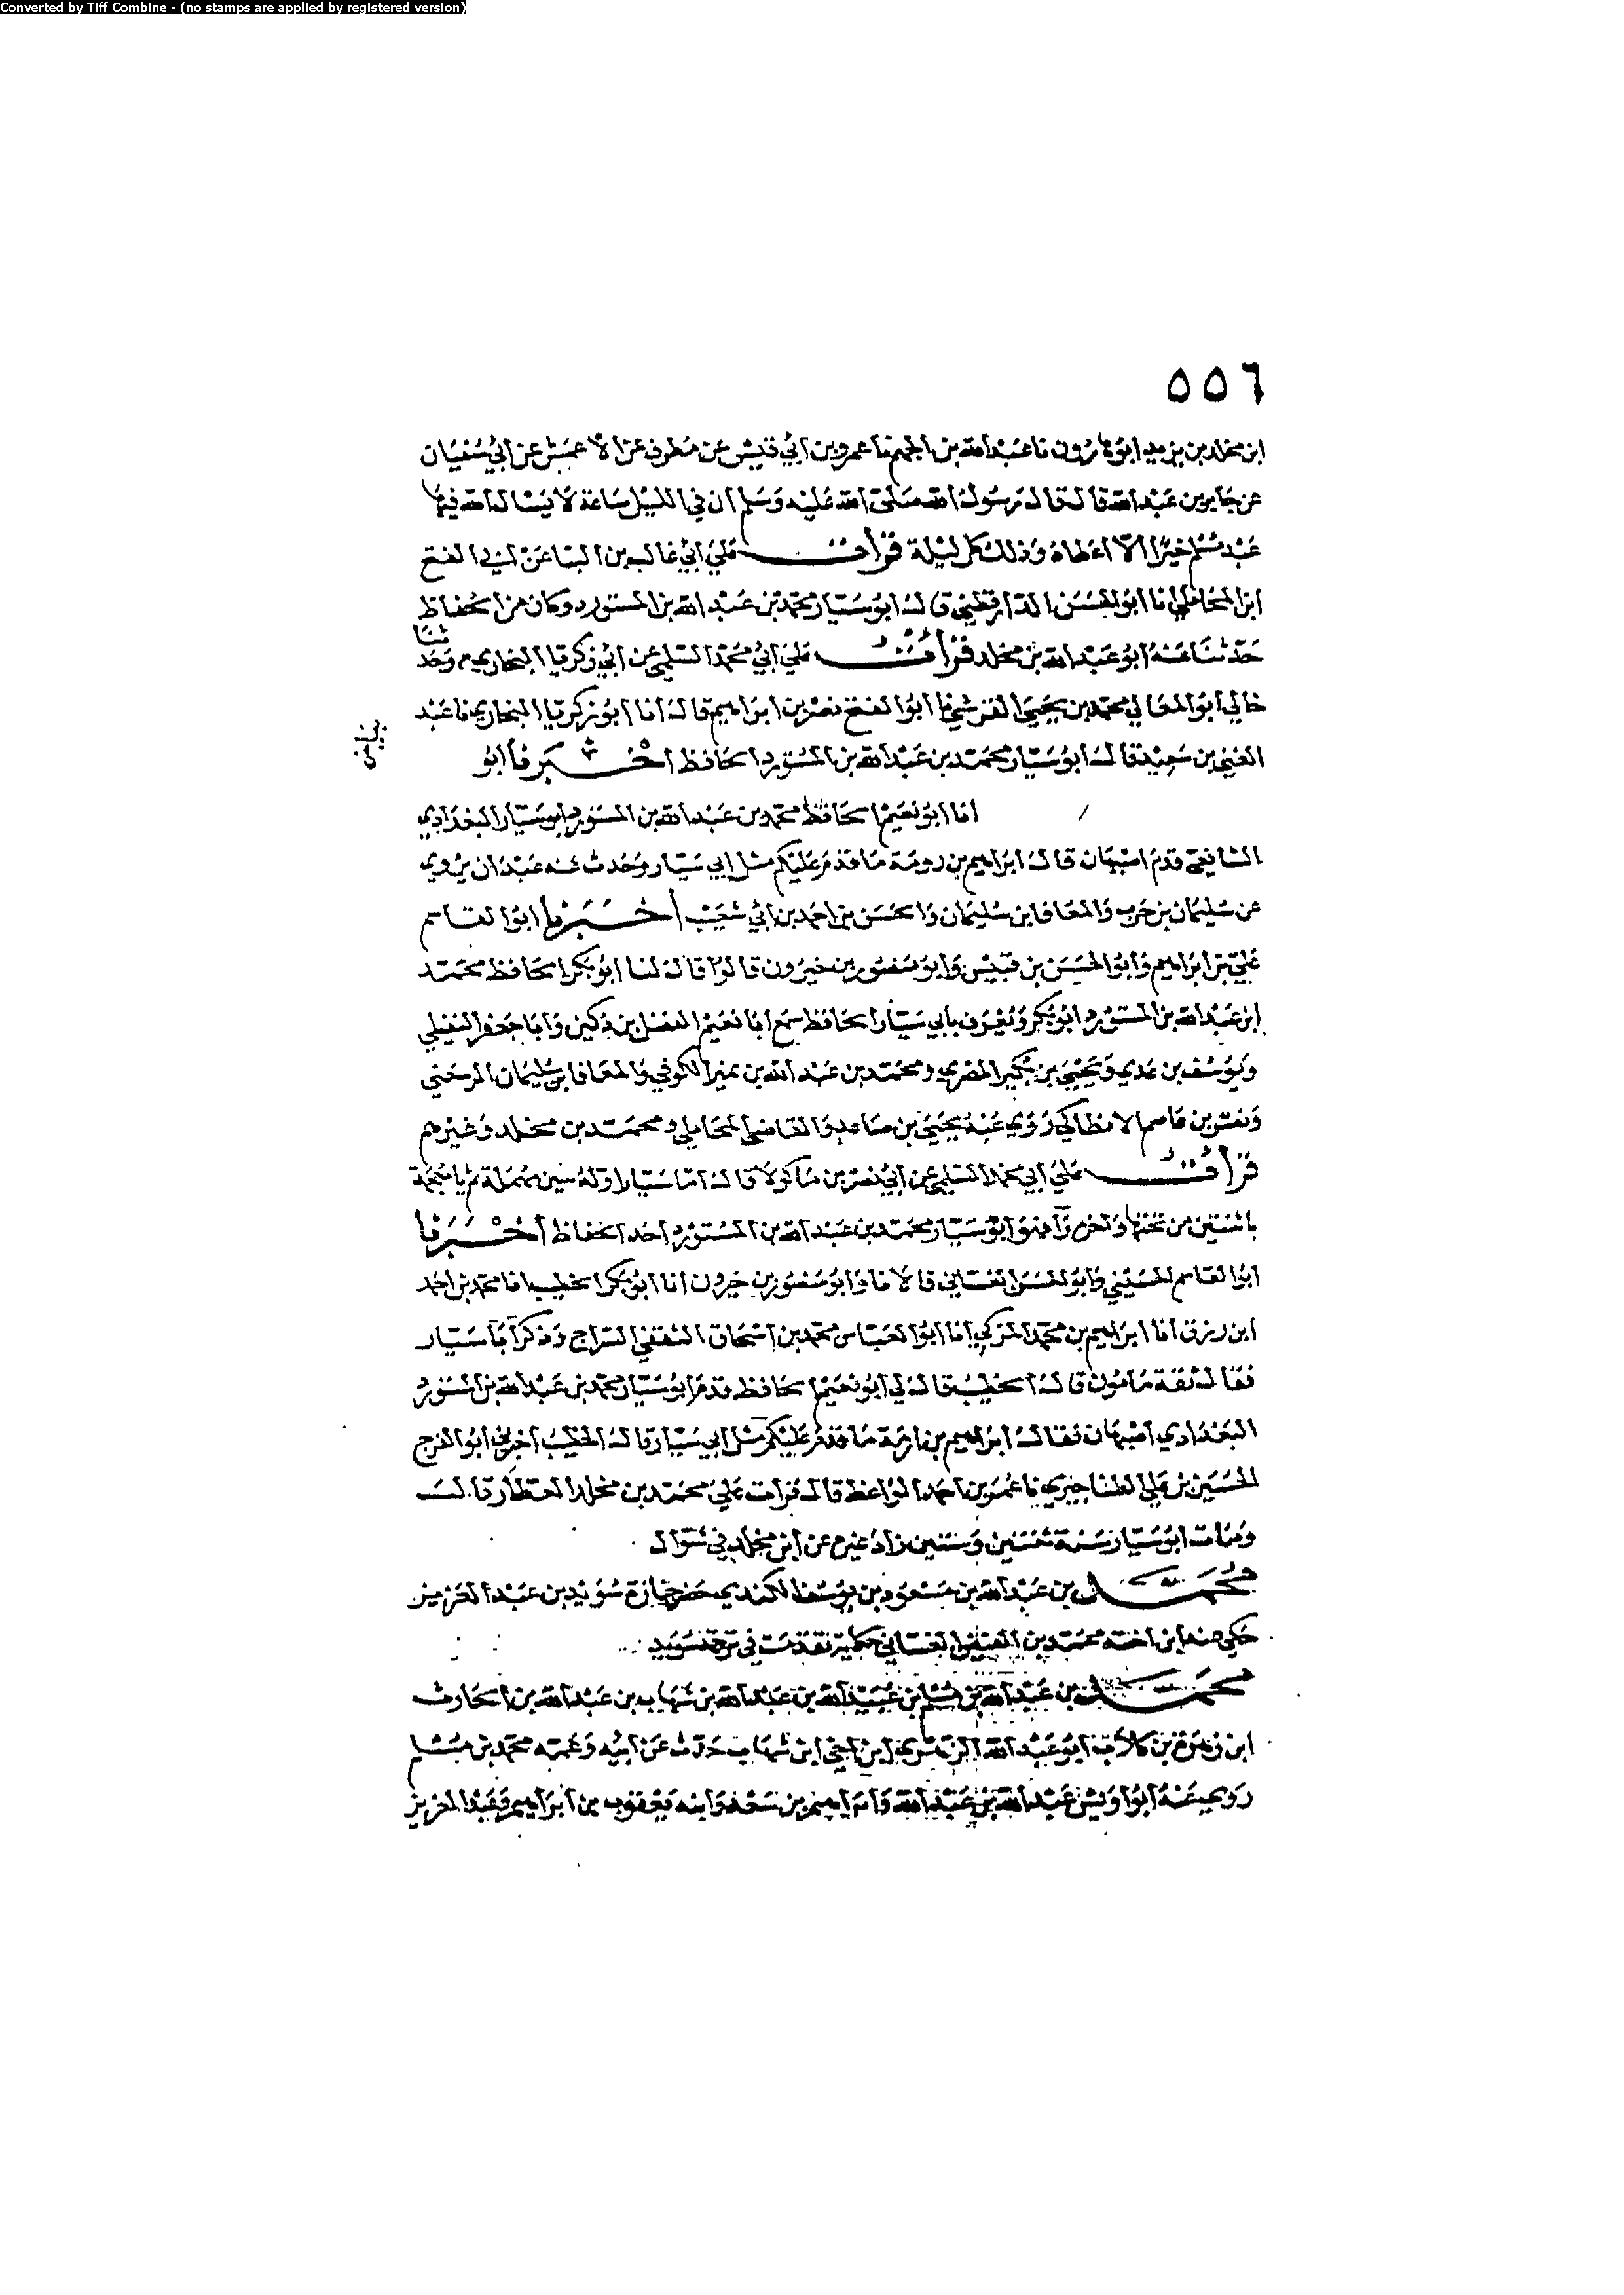 Converted by Tiff Combine - (no stamps are applied by registered version)
٥٥٦
ابن مخلد بن يزيد ابو هارون نا عبد الله بن الجهم نا عمرو بن ابي قيس عن مطرف عن الأعمش عن ابي سفيان
عن جابر بن عبد الله قال قال رسول الله صلى الله عليه وسلم ان في الليل ساعة لا يسال الله فيها
عبد مسلم خيرا الا اعطاه وذلك كل ليلة قرأت على ابي غالب بن البنا عن ابي الفتح
ابن المحاملي انا ابو الحسن الدارقطني قال ابو سيار محمد بن عبد الله بن المستورد وكان من الحفاظ
حدثنا عنه ابو عبد الله بن مخلد قرأت على ابي محمد السلمي عن ابي زكريا البخاري ح وحد
ثنا
خالي ابو المعالي محمد بن يحيى القرشي نا ابو الفتح نصر بن ابراهيم قال انا ابو زكريا البخاري نا عبد
الغني بن سعيد قال ابو سيار محمد بن عبد الله بن المستورد الحافظ اخبرنا ابو
انا ابو نعيم الحافظ محمد بن عبد الله بن المستورد ابو سيار البغدادي
الشافعي قدم اصبهان قال ابراهيم بن رومة ما قدم عليكم مثل ابي سيار وحدث عنه عبدان يروي
عن سليمان بن حرب والمعافا بن سليمان والحسن بن احمد بن ابي شعيب اخبرنا ابو القاسم
علي بن ابراهيم وابو الحسن بن قبيس وابو منصور بن خيرون قالوا قال لنا ابو بكر الحافظ محمد
ابن عبد الله بن المستورد ابو بكر ويعرف بابي سيار الحافظ سمع ابا نعيم الفضل بن دكين وابا جعفر النفيلي
ويوسف بن عدي ويحيى بن بكير المصري ومحمد بن عبد الله بن نمير الكوفي والمعافا بن سليمان الرسعني
ونصر بن عاصم الانطاكي روى عنه يحيى بن صاعد والقاضي المحاملي ومحمد بن مخلد وغيرهم
قرأت على ابي محمد السلمي عن ابي نصر بن ماكولا قال اما سيار اوله سين مهملة ثم يا معجمة
باثنتين من تحتها واخره را فهو ابو سيار محمد بن عبد الله بن المستورد احد الحفاظ اخبرنا
ابو القاسم الحسيني وابو الحسن الغساني قالا نا وابو منصور بن خيرون انا ابو بكر الخطيب انا محمد بن احمد
ابن رزق انا ابراهيم بن محمد المزكي انا ابو العباس محمد بن اسحاق الثقفي السراج وذكر ابا سيار
فقال ثقة مامون قال الخطيب قال لي ابو نعيم الحافظ قدم ابو سيار محمد بن عبد الله بن المستورد
البغدادي اصبهان فقال ابراهيم بن فارمة ما قدم عليكم مثل ابي سيار قال الخطيب اخبرني ابو الفرج
الحسين بن علي الطناجيري نا عمر بن احمد الواعظ قال قرات على محمد بن مخلد العطار قال
ومات ابو سيار سنة ثنتين وستين زاد غيره عن ابن مخلد في شوال
محمد بن عبد الله بن مسعود بن يوسف الكندي حضر جنازة سويد بن عبد العزيز
حكى عنه ابن اخته محمد بن الفيض الغساني حكاية تقدمت في ترجمة سويد
محمد بن عبد الله بن مسلم بن عبيد الله بن عبد الله بن شهاب بن عبد الله بن الحارث
ابن زهرة بن كلاب ابو عبد الله الزهري ابن اخي ابن شهاب حدث عن ابيه وعمه محمد بن مسلم
روى عنه ابو اويس عبد الله بن عبد الله وابراهيم بن سعد وابنه يعقوب بن ابراهيم وعبد العزيز